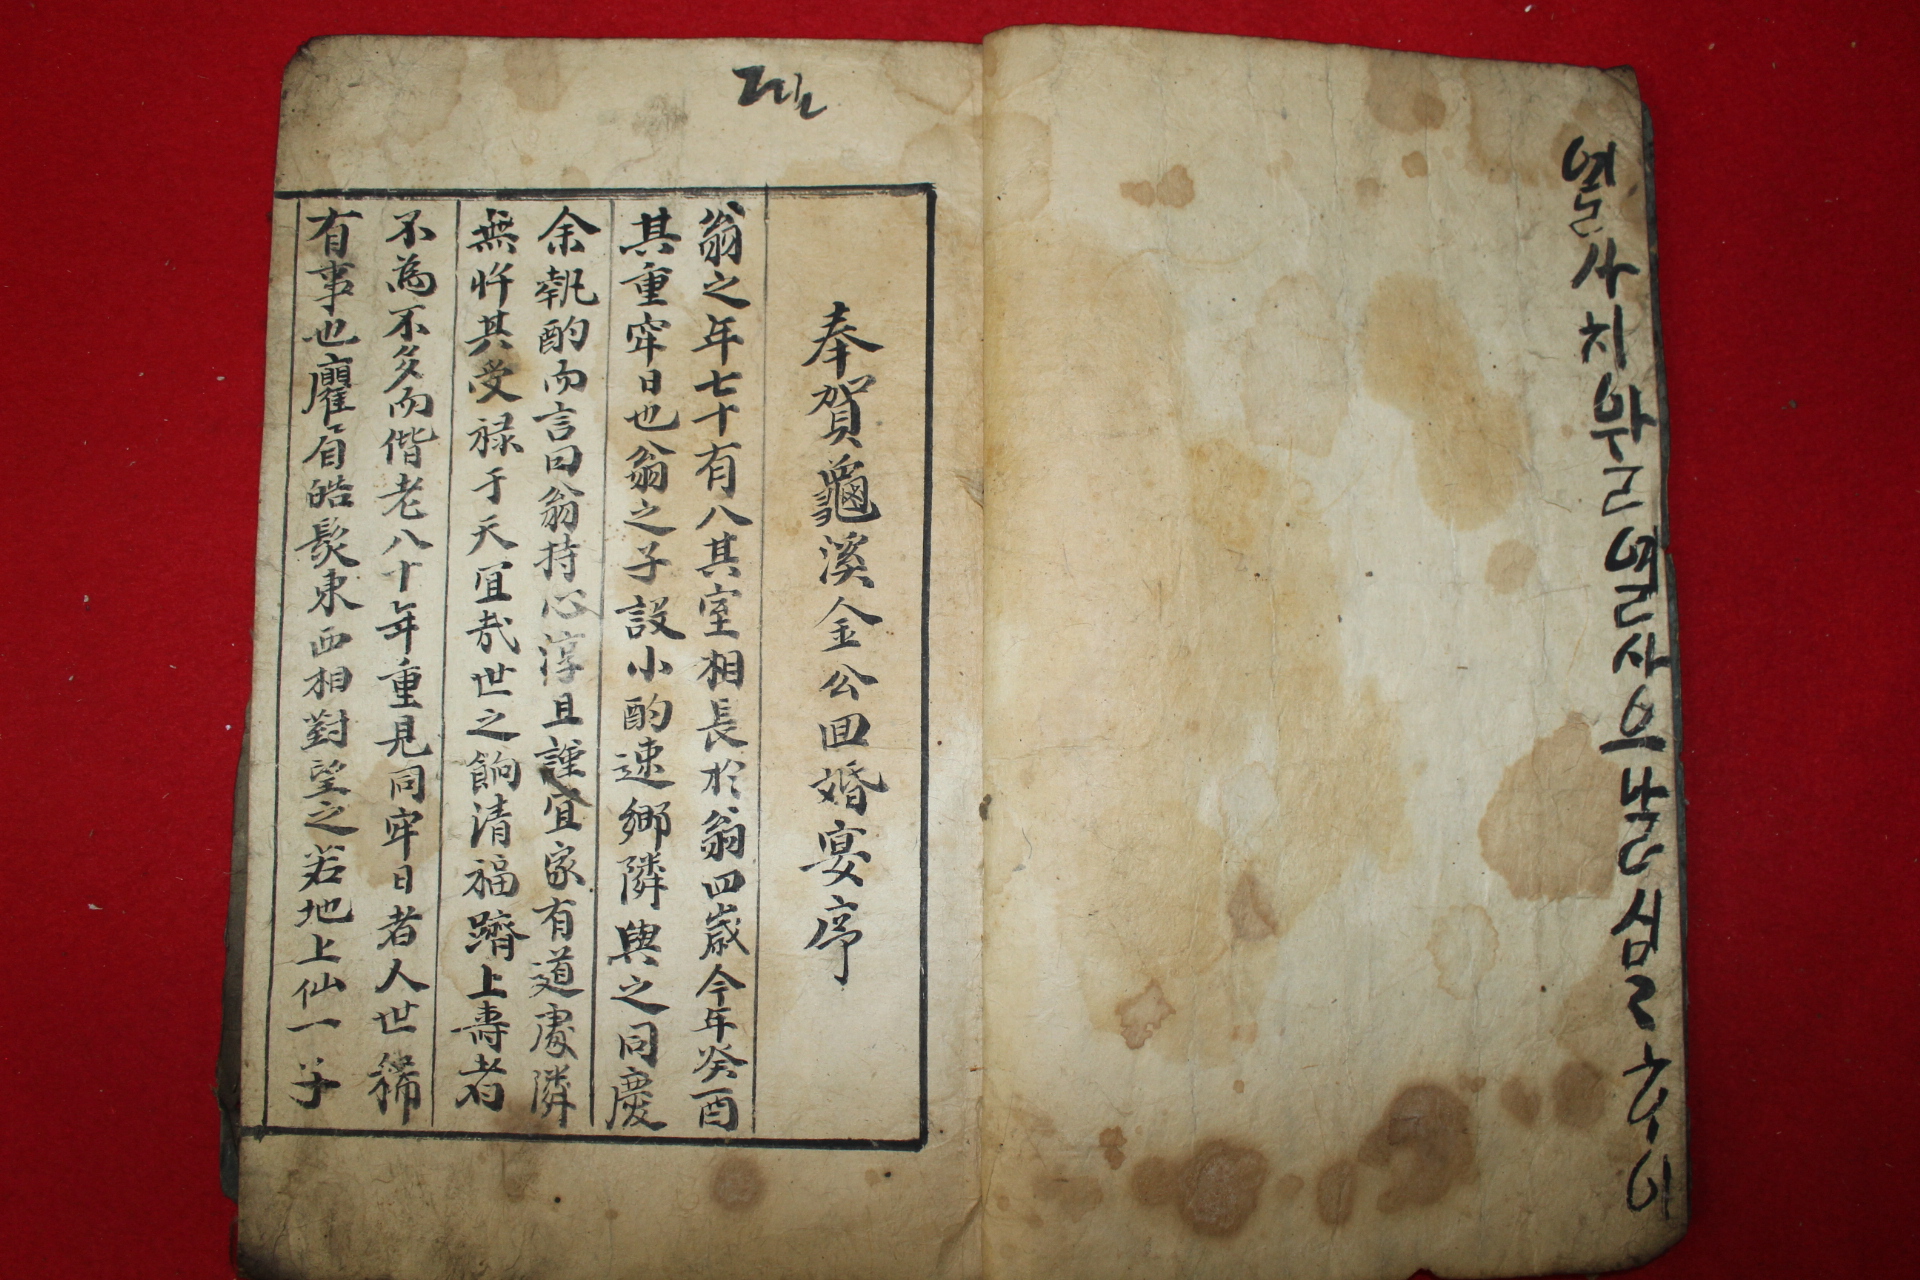 열사치 열사으날심
奉賀龜溪金公回婚宴序
翁之年七十有八其室相長於翁四歲今年癸酉
其重牢日也翁之子設小酌速鄉隣與之同慶
余執酌而言曰翁持心淳且謹宜家有道處隣
無忤其受祿于天宜哉世之餉清福躋上壽者
不為不多而偕老八十年重見同牢日者人世稀
有事也龐眉皓髮東西相對望之若地上仙一子